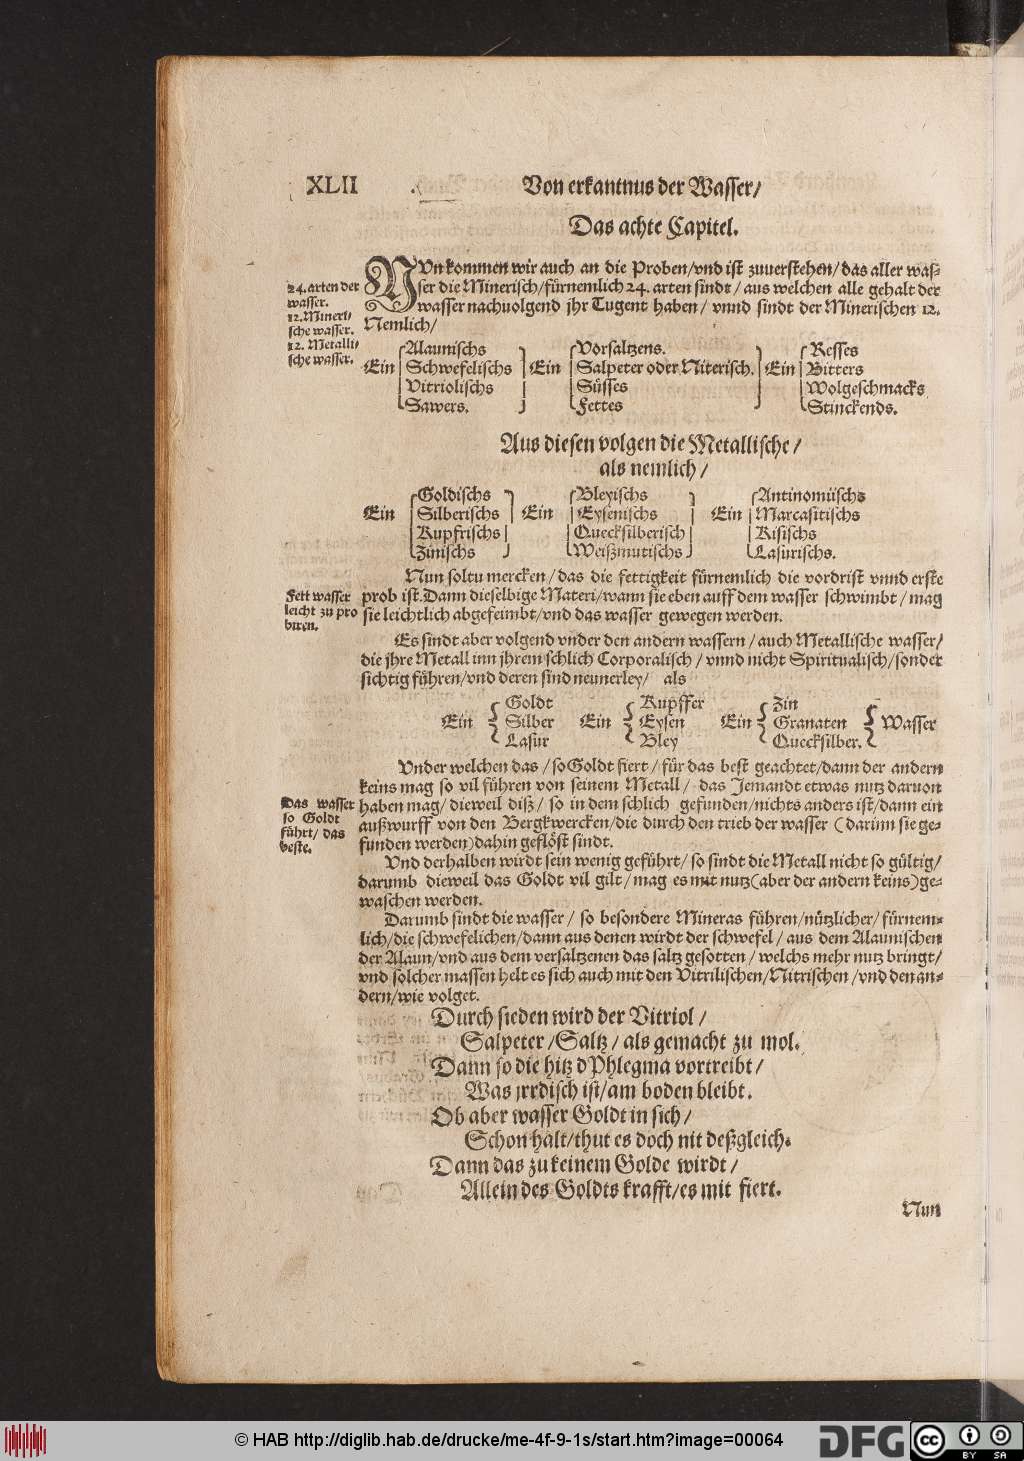 XLII
Von erkantnus der Wasser/
Das achte Capitel.
24. arten der
wasser.
12. Mineri/
sche wasser.
12. Metalli/
sche wasser.
NUn kommen wir auch an die Proben/vnd ist zuuerstehen/das aller was-
ser die Minerisch/fürnemlich 24. arten sindt/ aus welchen alle gehalt der
wasser nachuolgend jhr Tugent haben/ vnnd sindt der Minerischen 12.
Nemlich/
Ein
Alaunischs
Schwefelischs
Vitriolischs
Sawers.
Ein
Vorsaltzens.
Salpeter oder Niterisch.
Süsses
Fettes
Ein
Resses
Bitters
Wolgeschmacks
Stinckends.
Aus diesen volgen die Metallische/
als nemlich/
Ein
Goldischs
Silberischs
Kupfrischs
Zinischs
Ein
Bleyischs
Eysenischs
Quecksilberisch
Weißmutischs
Ein
Antinomiischs
Marcasitischs
Kisischs
Lasurischs.
Fett wasser
leicht zu pro
biren.
Nun soltu mercken/das die fettigkeit fürnemlich die vordrist vnnd erste
prob ist. Dann dieselbige Materi/wann sie eben auff dem wasser schwimbt/mag
sie leichtlich abgefeimbt/vnd das wasser gewegen werden.
Es sindt aber volgend vnder den andern wassern/auch Metallische wasser/
die jhre Metall inn jhrem schlich Corporalisch/vnnd nicht Spiritualisch/sonder
sichtig führen/vnd deren sind neunerley/ als
Ein
Goldt
Silber
Lasur
Ein
Kupffer
Eysen
Bley
Ein
Zin
Granaten
Quecksilber.
Wasser
Das wasser
so Goldt
führt/ das
beste.
Vnder welchen das/so Goldt fiert/für das best geachtet/dann der andern
keins mag so vil führen von seinem Metall/ das Jemandt etwas nutz daruon
haben mag/dieweil diß/ so in dem schlich gefunden/nichts anders ist/dann ein
außwurff von den Bergkwercken/die durch den trieb der wasser (darinn sie ge-
funden werden)dahin geflöst sindt.
Vnd derhalben wirdt sein wenig geführt/so sindt die Metall nicht so gültig/
darumb dieweil das Goldt vil gilt/mag es mit nutz(aber der andern keins)ge-
waschen werden.
Darumb sindt die wasser/ so besondere Mineras führen/nützlicher/fürnem-
lich/die schwefelichen/dann aus denen wirdt der schwefel/aus dem Alaunischen
der Alaun/vnd aus dem versaltzenen das saltz gesotten/welchs mehr nutz bringt/
vnd solcher massen helt es sich auch mit den Vitrilischen/Nitrischen/vnd den an-
dern/wie volget.
Durch sieden wird der Vitriol/
Salpeter/Saltz/als gemacht zu mol.
Dann so die hitz d Phlegma vortreibt/
Was jrrdisch ist/am boden bleibt.
Ob aber wasser Goldt in sich/
Schon hält/thut es doch nit deßgleich.
Dann das zu keinem Golde wirdt/
Allein des Goldts krafft/es mit fiert.
Nun
© HAB http://diglib.hab.de/drucke/me-4f-9-1s/start.htm?image=00064
DFG
cc
BY
SA